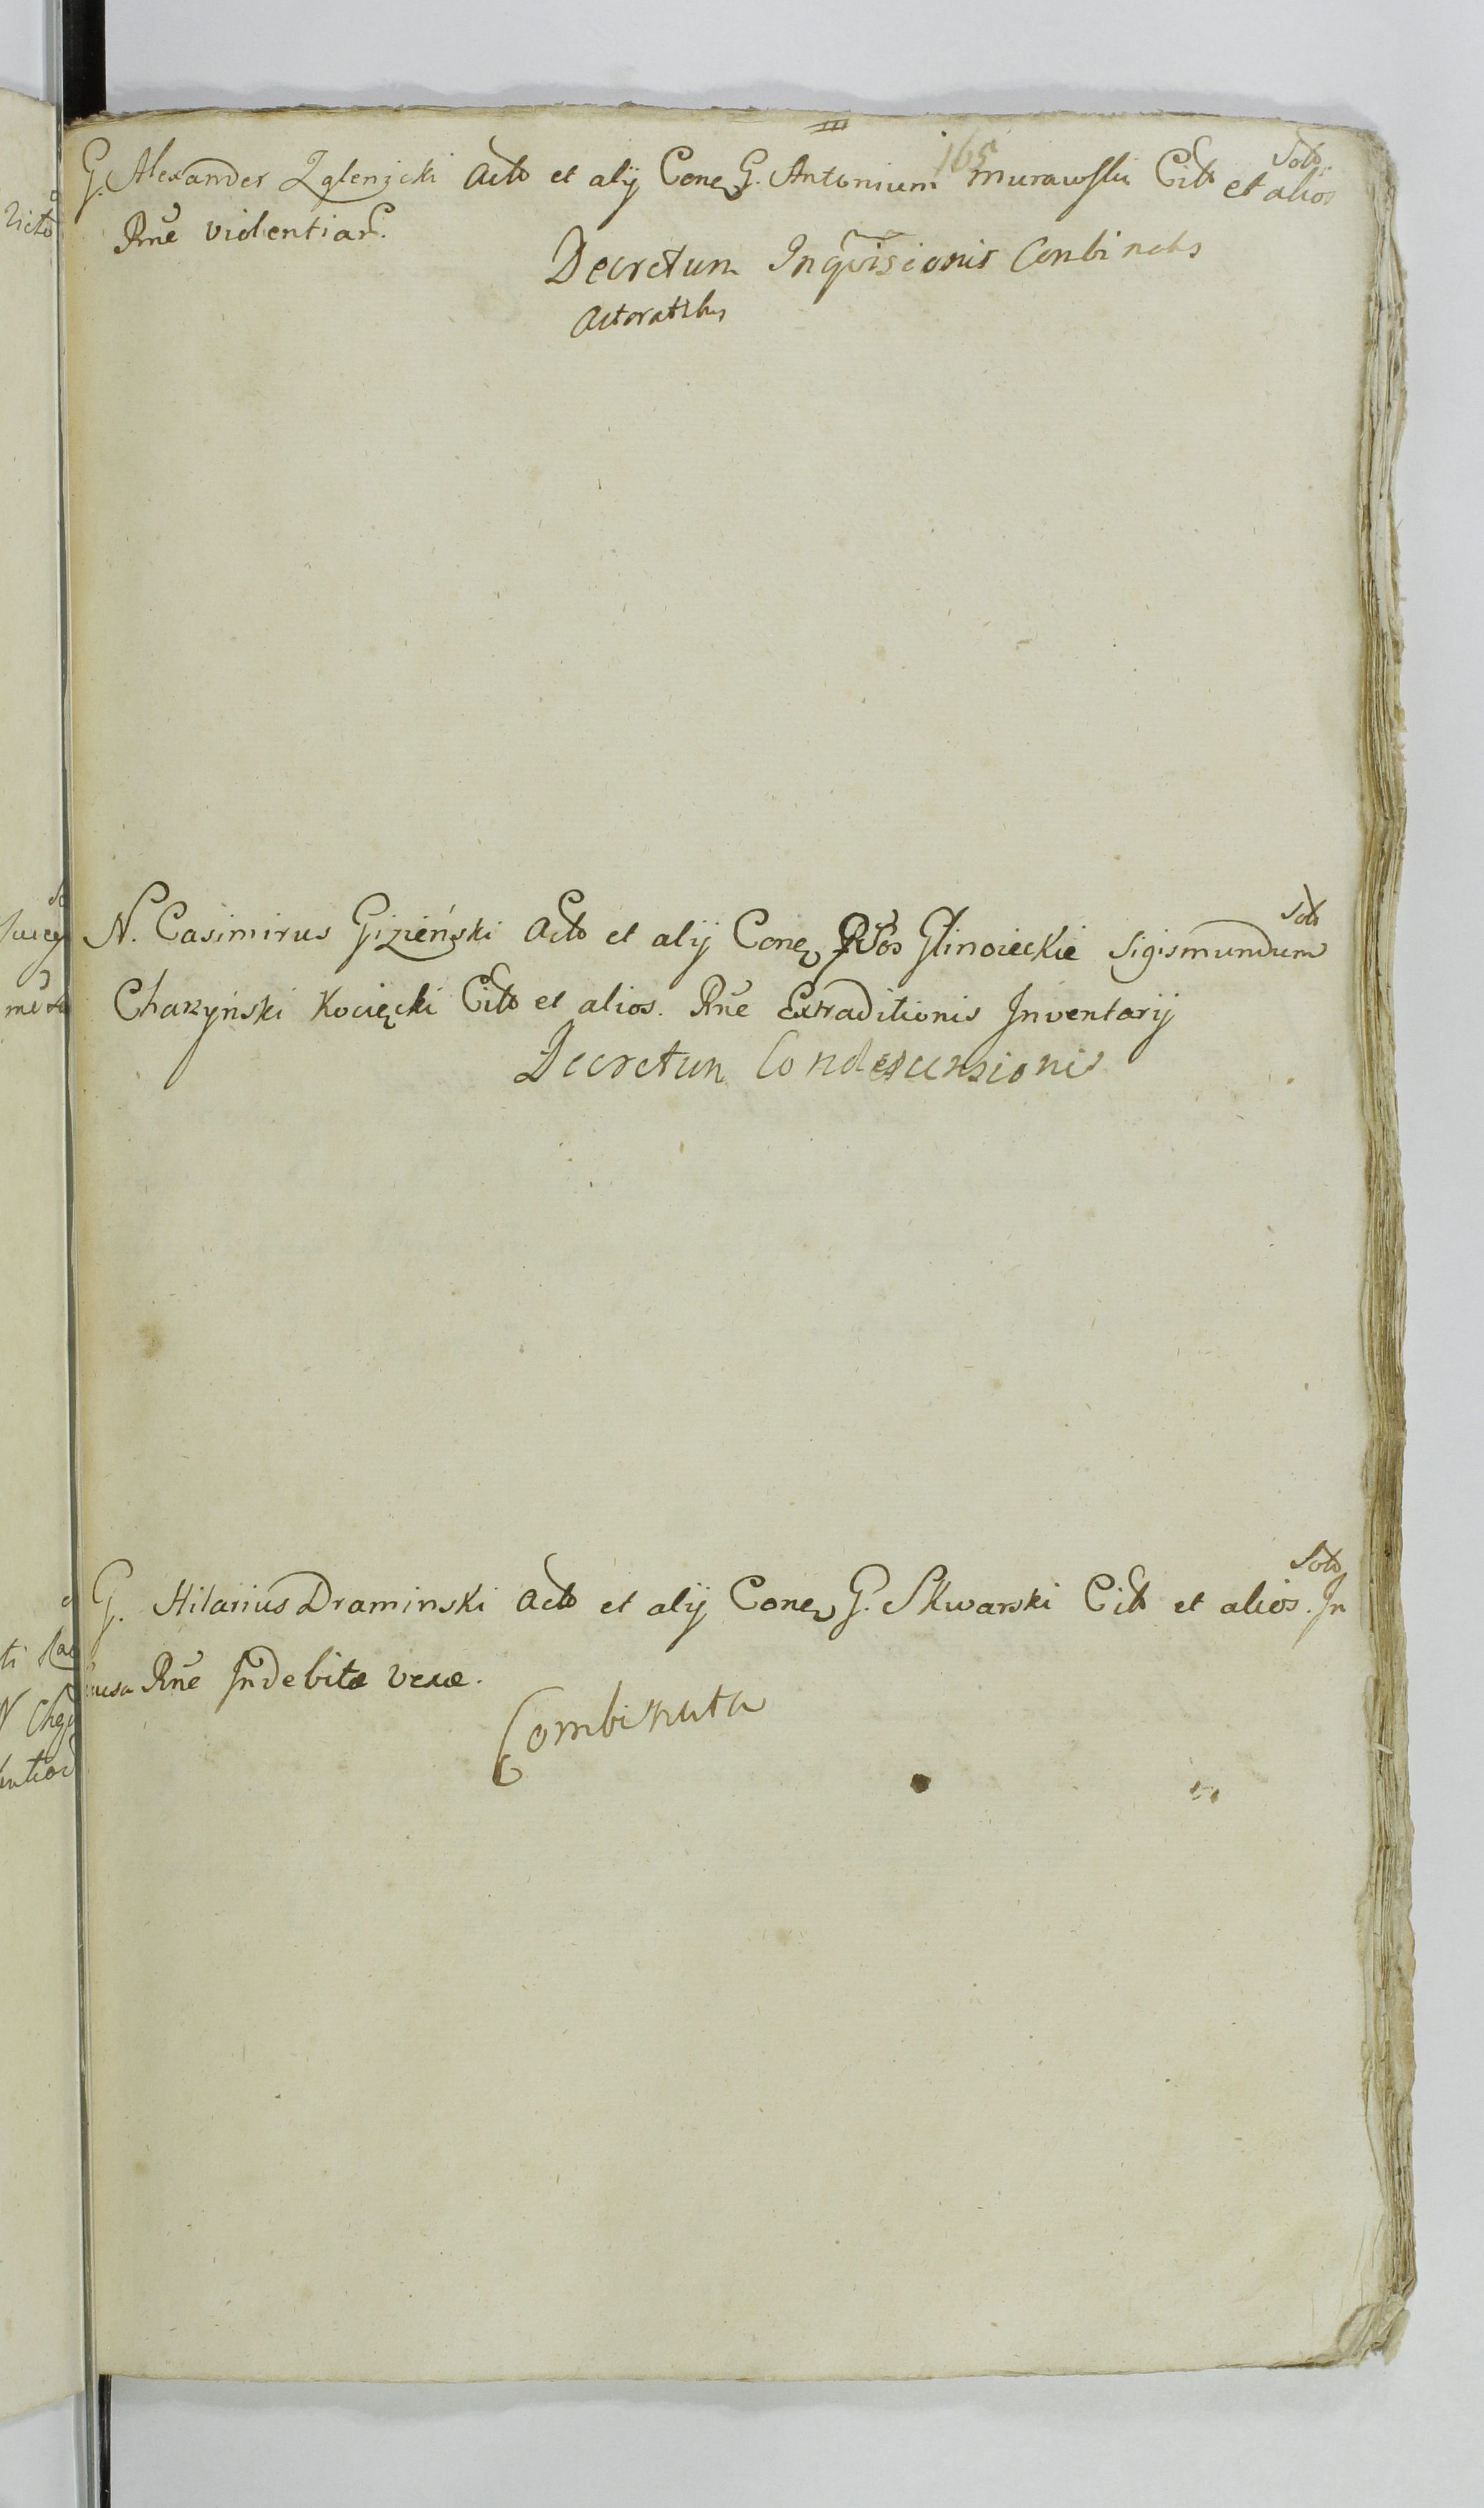 165
Solo
G. Alexander Zglenicki Acto et alij Cone G. Antonium Murawski Citt et alios
Rne violentiar.
Decretum Inqvisicionis Conbinatis
Actoratibus
Solo
N. Casimirus Gizieński Acto et alij Cone Glinoieckie Sigismundum
Charzyński Kocięcki Citt et alios. Rne Extraditionis Inventarij
Decretum Condescensionis
Solo
G. Hilarius Draminski Acto et alij Cone G. Skwarski Citt et alios. In
causa Rne Indebitæ vexæ.
Combinata